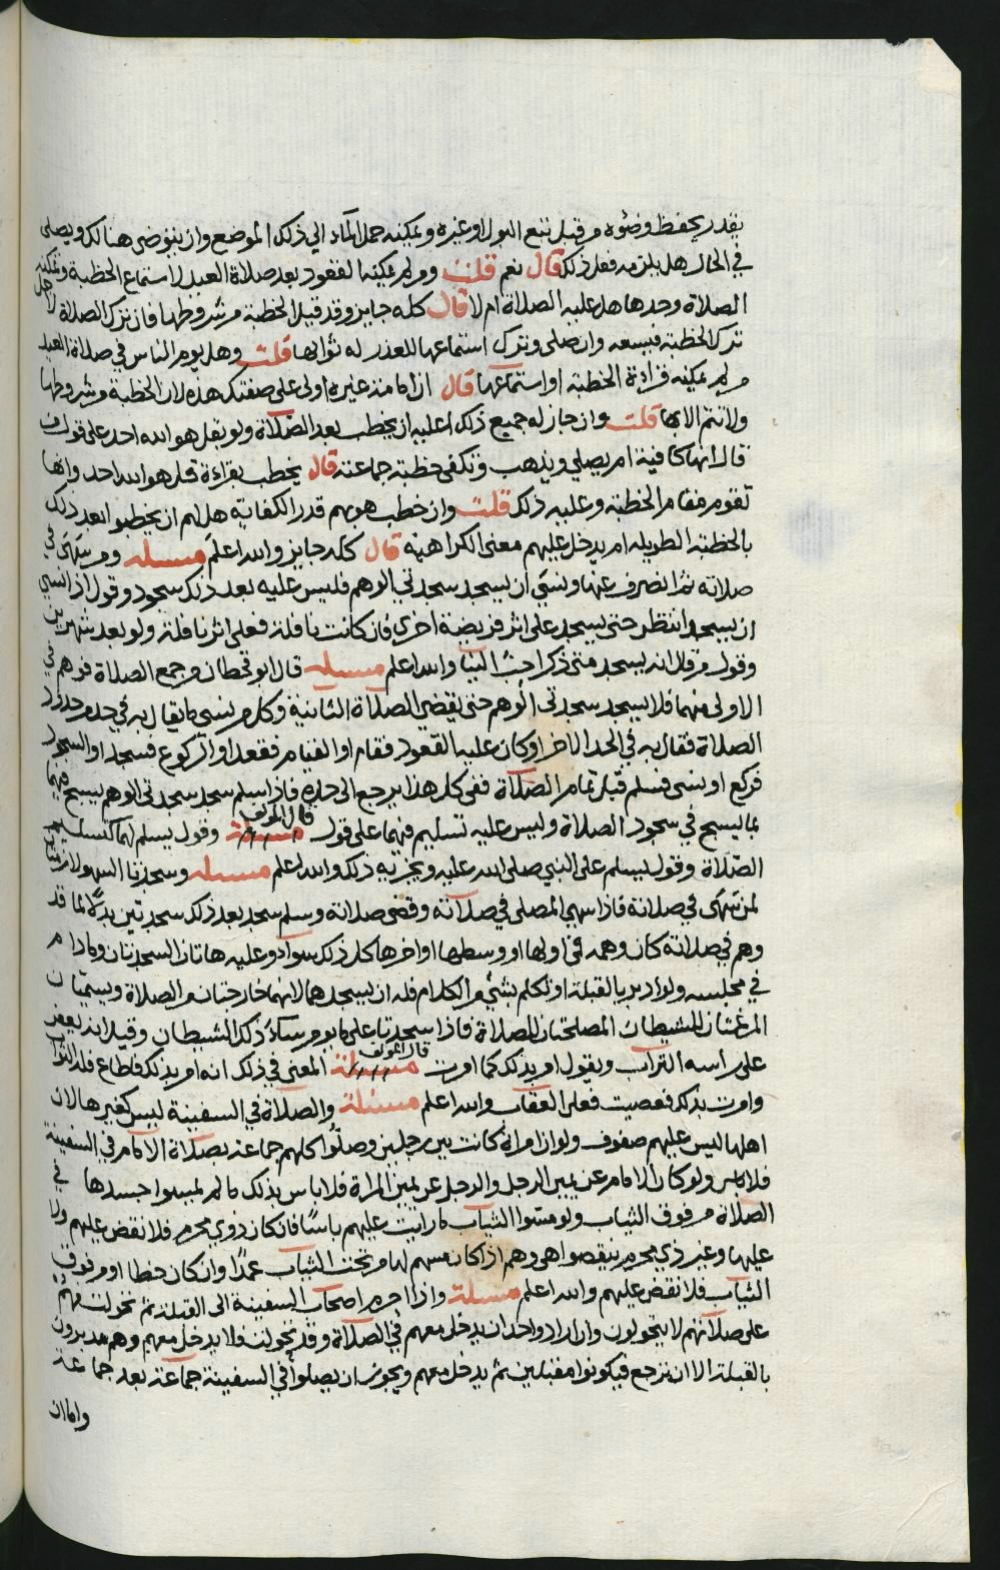 يقدر يحفظ وضوءه من قبل تتبع البول او غيره ويمكنه حمل الماء الي ذلك الموضع وان يتوضي هنالك ويصلي
في الحال هل يلزمه فعل ذلك قال نعم قلت ومن لم يمكنه القعود بعد صلاة العيد لاستماع الخطبة ويمكنه
الصلاة وحدها هل عليه الصلاة ام لا قال كله جايز وقد قيل الخطبة من شروطها فان ترك الصلاة لاجل
ترك الخطبة فيسعه وان صلى وترك استماعها للعذر له ثوابها قلت وهل يوم الناس في صلاة العيد
من لم يمكنه قراءة الخطبة او استماعها قال ان امامة غيره اولى على صفتك هذه لان الخطبة من شروطها
ولا تتم الا بها قلت وان جاز له جميع ذلك اعليه ان يخطب بعد الصلاة ولو بقل هو الله احد على قول من
قال انها كافية ام يصلي ويذهب وتكفى خطبة جماعته قال يخطب بقراءة قل هو الله احد وانها
تقوم مقام الخطبة وعليه ذلك قلت وان خطب هو بهم قدر الكفاية هل لهم ان يخطبوا بعد ذلك
بالخطبة الطويله ام يدخل عليهم معنى الكراهية قال كله جايز والله اعلم مسله ومن سهى في
صلاته ثم انصرف عنها ونسي ان يسجد سجدتي الوهم فليس عليه بعد ذلك سجود وقول اذا نسي
ان يسجد انتظر حتى يسجد على اثر فريضة اخرى فان كانت نافلة فعلى اثر نافلة ولو بعد شهرين
وقول من قال انه يسجد متى ذكر احب الينا والله اعلم مسله قال ابو قحطان ومن جمع الصلاة فوهم في
الاولى منهما فلا يسجد سجدتى الوهم حتى يقضي الصلاة الثانية وكل من نسي ما يقال به في حد من حدود
الصلاة فقال به في الحد الاخر او كان عليه القعود فقام او القيام فقعد او الركوع فسجد او السجود
فركع او نسى فسلم قبل تمام الصلاة ففى كل هذا يرجع الى حده فاذا سلم سجد سجدتى الوهم يسبح فيهما
بما يسبح في سجود الصلاة وليس عليه تسليم فيهما على قول قال المولف وقول يسلم لهما كتسليم
الصلاة وقول ليسلم على النبي صلى الله عليه ويجزيه ذلك والله اعلم مسله وسجدتا السهو لازمتان
لمن سهى في صلاته فاذا سهي المصلى في صلاته وقضى صلاته وسلم سجد بعد ذلك سجدتين بدلا لما قد
وهم في صلاته كان وهمه في اولها او وسطها او اخرها كل ذلك سواء وعليه هاتان السجدتان ما دام
في مجلسه ولو ادبر بالقبلة او تكلم بشيء من الكلام فله ان يسجدهما لانهما خارجتان من الصلاة ويسميتان
المرغمتان للشيطان المصلحتان للصلاة فاذا سجدتا على ما يومر ساء ذلك الشيطان وقيل انه يعفر
على راسه التراب ويقول امر بذلك كما امرت قال المولف المعنى في ذلك انه امر بذلك فاطاع فله الثواب
وامرت بذلك فعصيت فعلى العقاب والله اعلم مسئلة والصلاة في السفينة ليس كغيرها لان
اهلها ليس عليهم صفوف ولو ان امراة كانت بين رجلين وصلوا كلهم جماعة بصلاة الامام في السفينة
فلا باس ولو كان الامام عن يمين الرجل والرجل عن يمين المراة فلا باس بذلك ما لم يمسوا جسدها في
الصلاة من فوق الثياب ولو مسوا الثياب ما رايت عليهم باسا فان كان ذوي محرم فلا نقض عليهم ولا
عليها وغير ذي محرم ينقضوا هى وهم اذا كان مسهم لها من تحت الثياب عمدا وان كان خطا او من فوق
الثياب فلا نقض عليهم والله اعلم مسئلة واذا احرم اصحاب السفينة الى القبلة ثم تحولت فهم
على صلاتهم لا يتحولون وان اراد واحد ان يدخل معهم في الصلاة وقد تحولت فلا يدخل معهم وهم مدبرون
بالقبلة الا ان ترجع فيكونوا مقبلين ثم يدخل معهم ويجوز ان يصلوا في السفينة جماعة بعد جماعة
واما ان